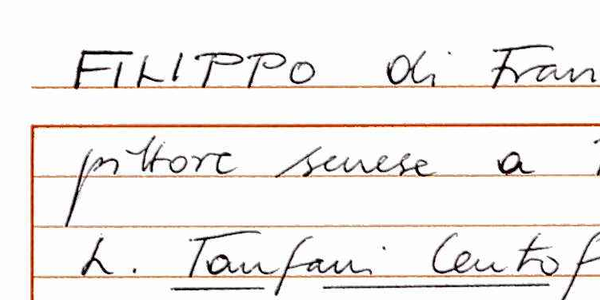 FILIPPO di Fran
pittore senese a
L. Tanfani Centof